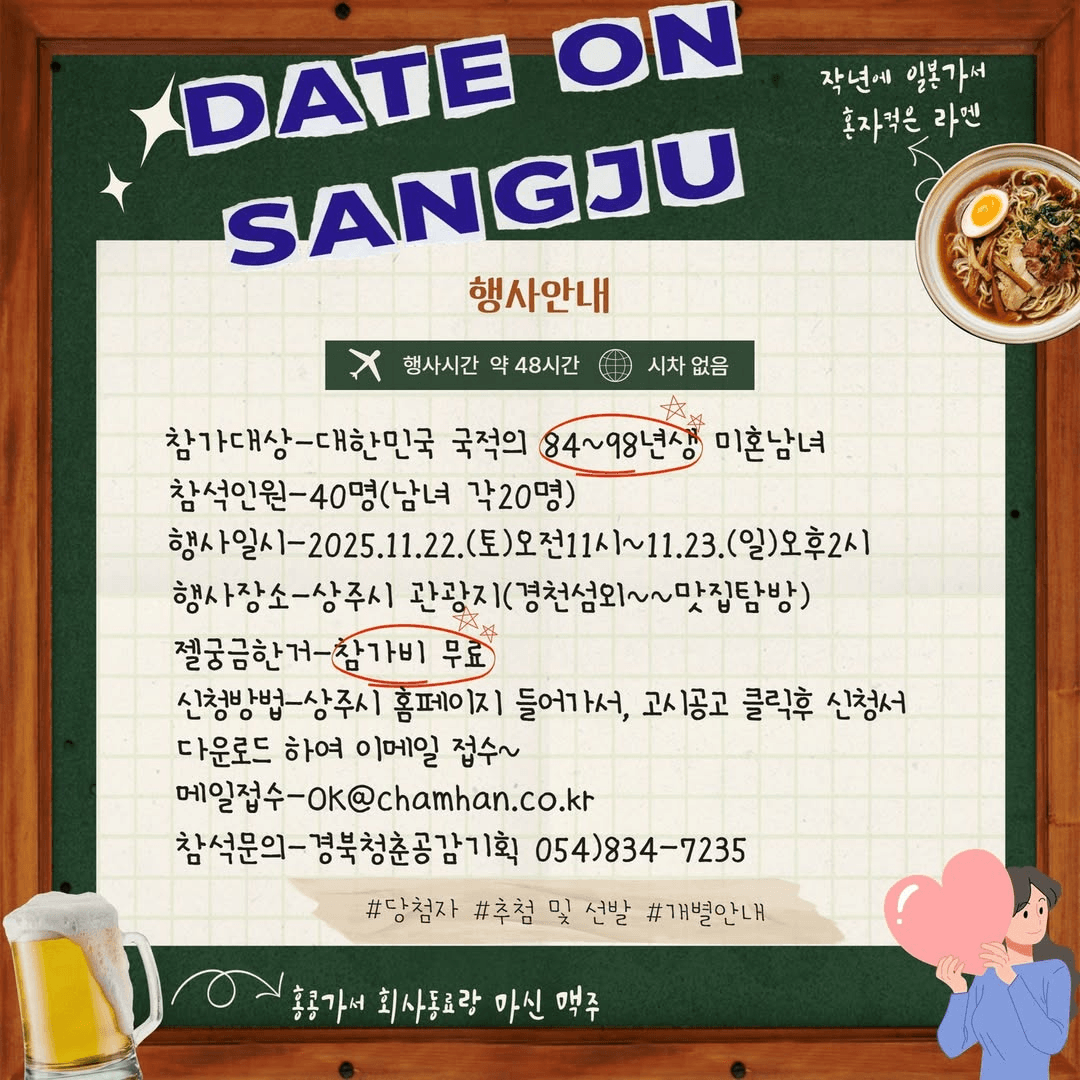 DATE ON
SANGJU
작년에 일본가서
혼자먹은 라멘
행사안내
행사시간 약 48시간 시차 없음
참가대상-대한민국 국적의 84~98년생 미혼남녀
참석인원-40명(남녀 각20명)
행사일시-2025.11.22.(토)오전11시~11.23.(일)오후2시
행사장소-상주시 관광지(경천섬외~~맛집탐방)
젤궁금한거-참가비 무료
신청방법-상주시 홈페이지 들어가서, 고시공고 클릭후 신청서
다운로드 하여 이메일 접수~
메일접수-OK@chamhan.co.kr
참석문의-경북청춘공감기획 054)834-7235
#당첨자 #추첨 및 선발 #개별안내
홍콩가서 회사동료랑 마신 맥주